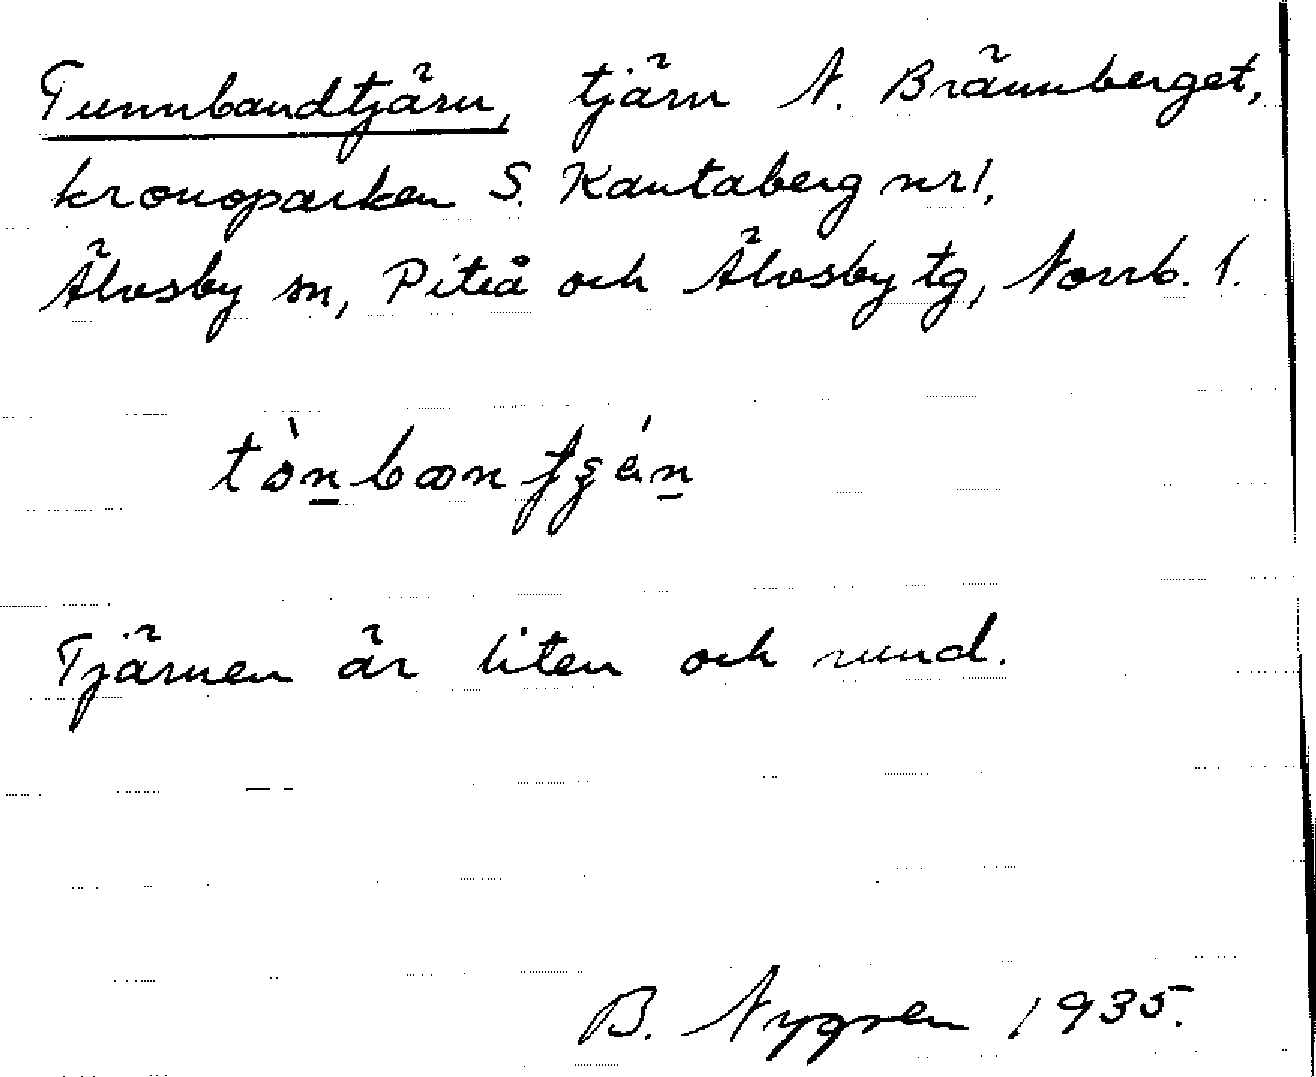 Tunnbandtjärn, tjärn N. Brännberget,
kronoparken S. Kantaberg nr 1,
Älvsby sn, Piteå och Älvsby tg, Norrb. l.
Tjärnen är liten och rund.
B. Nygren 1935.